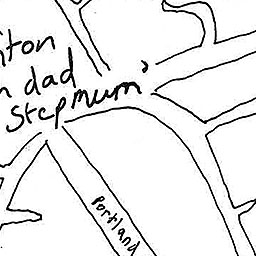 iton
n dad
stepmum'
Portland